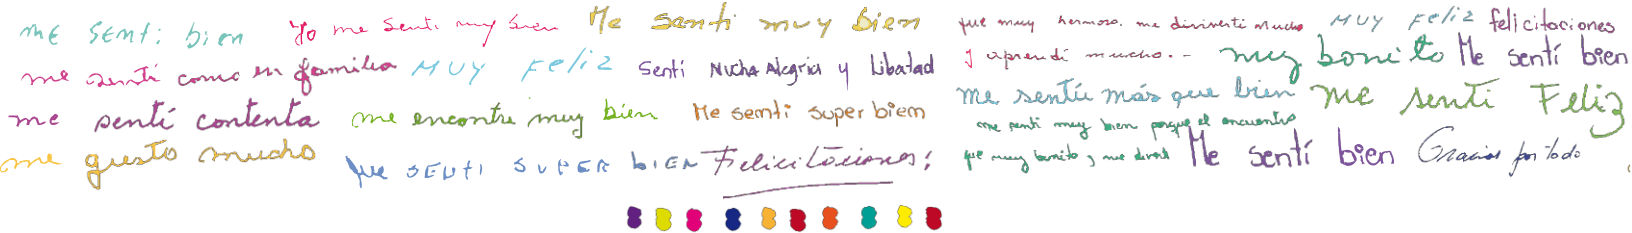 me sentí bien
Yo me senti muy bien
Me senti muy bien
fue muy hermoso. me diviverti mucho
y aprendí mucho.-
MUY FELIZ
felicitaciones
me sentí como en familia
MUY FELIZ
Sentí Mucha Alegria y libertad
muy bonito
Me sentí bien
me sentí contenta
me encontre muy bien
Me semti super biem
me sentíu más que bien
me senti Feliz
me gusto mucho
me senti muy bien porque el encuentro
fue muy bonito y me diverti
SENTI SUPER BIEN
Felicitaciones!
Me sentí bien
Gracias por todo